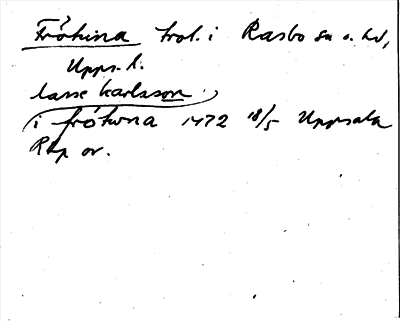 Frökina trol. i Rasbo sn o. hd,
Upps. l.
lasse karlsson
i frökwna 1472 18/5 Uppsala
RAp or.